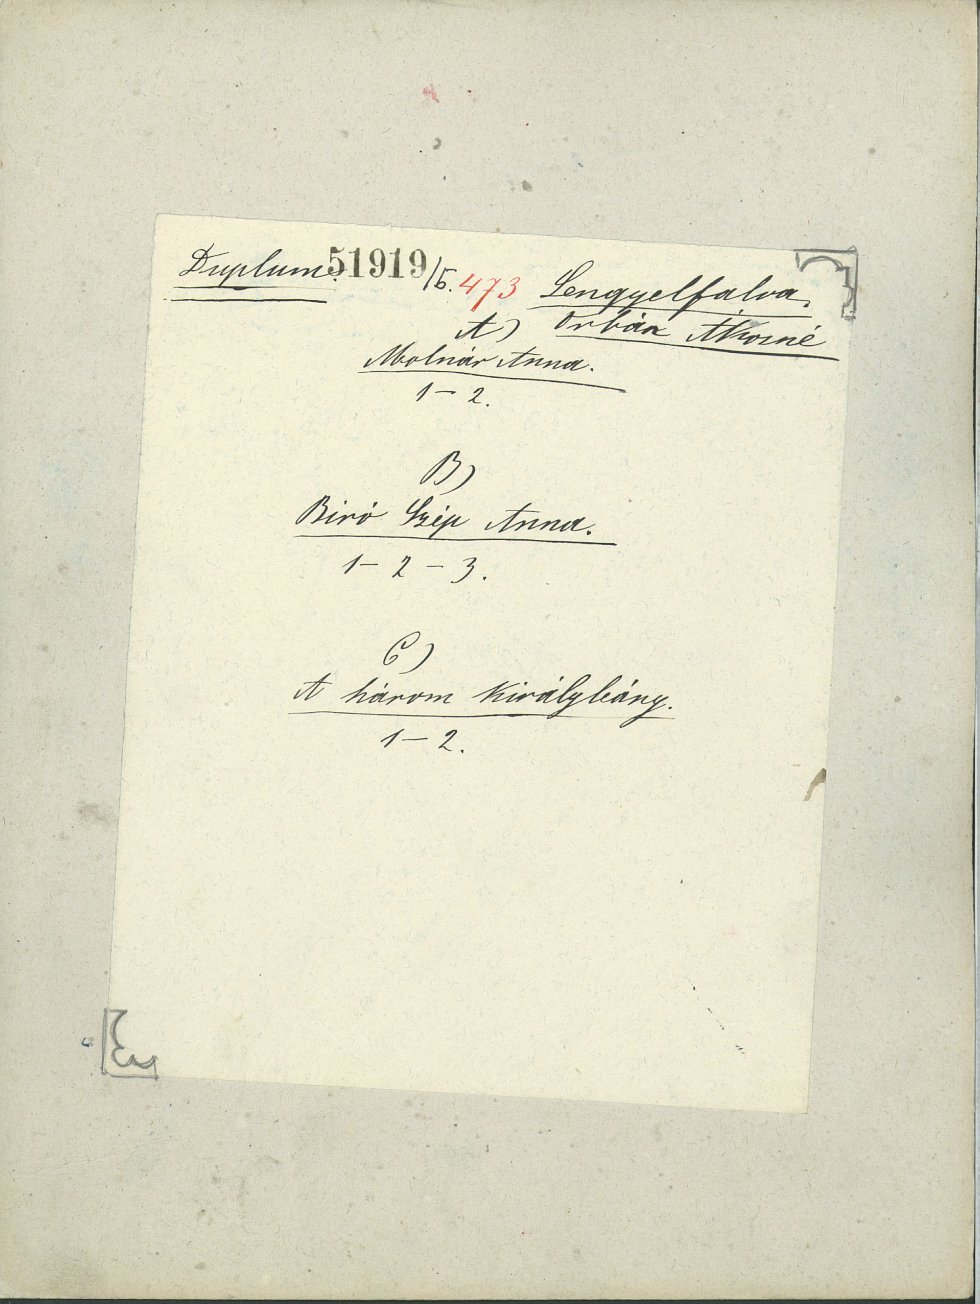 Duplum. 51919/5. 473 Lengyelfalva.
Orbán Ákosné
A)
Molnár Anna.
1 – 2.
B)
Biró Szép Anna.
1 – 2 – 3.
C)
A három királyleány.
1 – 2.